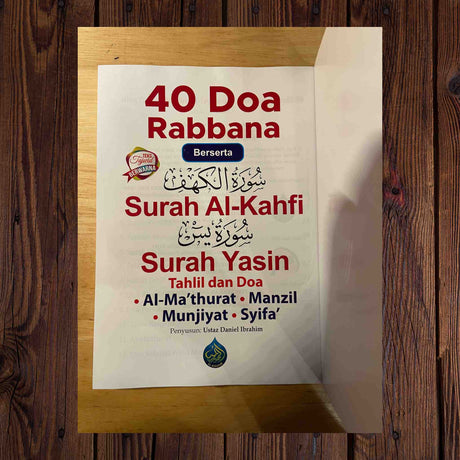 40 Doa
Rabbana
Berserta
TEKS
Tajwid
BERWARNA
سورة الكهف
Surah Al-Kahfi
سورة يس
Surah Yasin
Tahlil dan Doa
• Al-Ma'thurat • Manzil
• Munjiyat • Syifa'
Penyusun: Ustaz Daniel Ibrahim